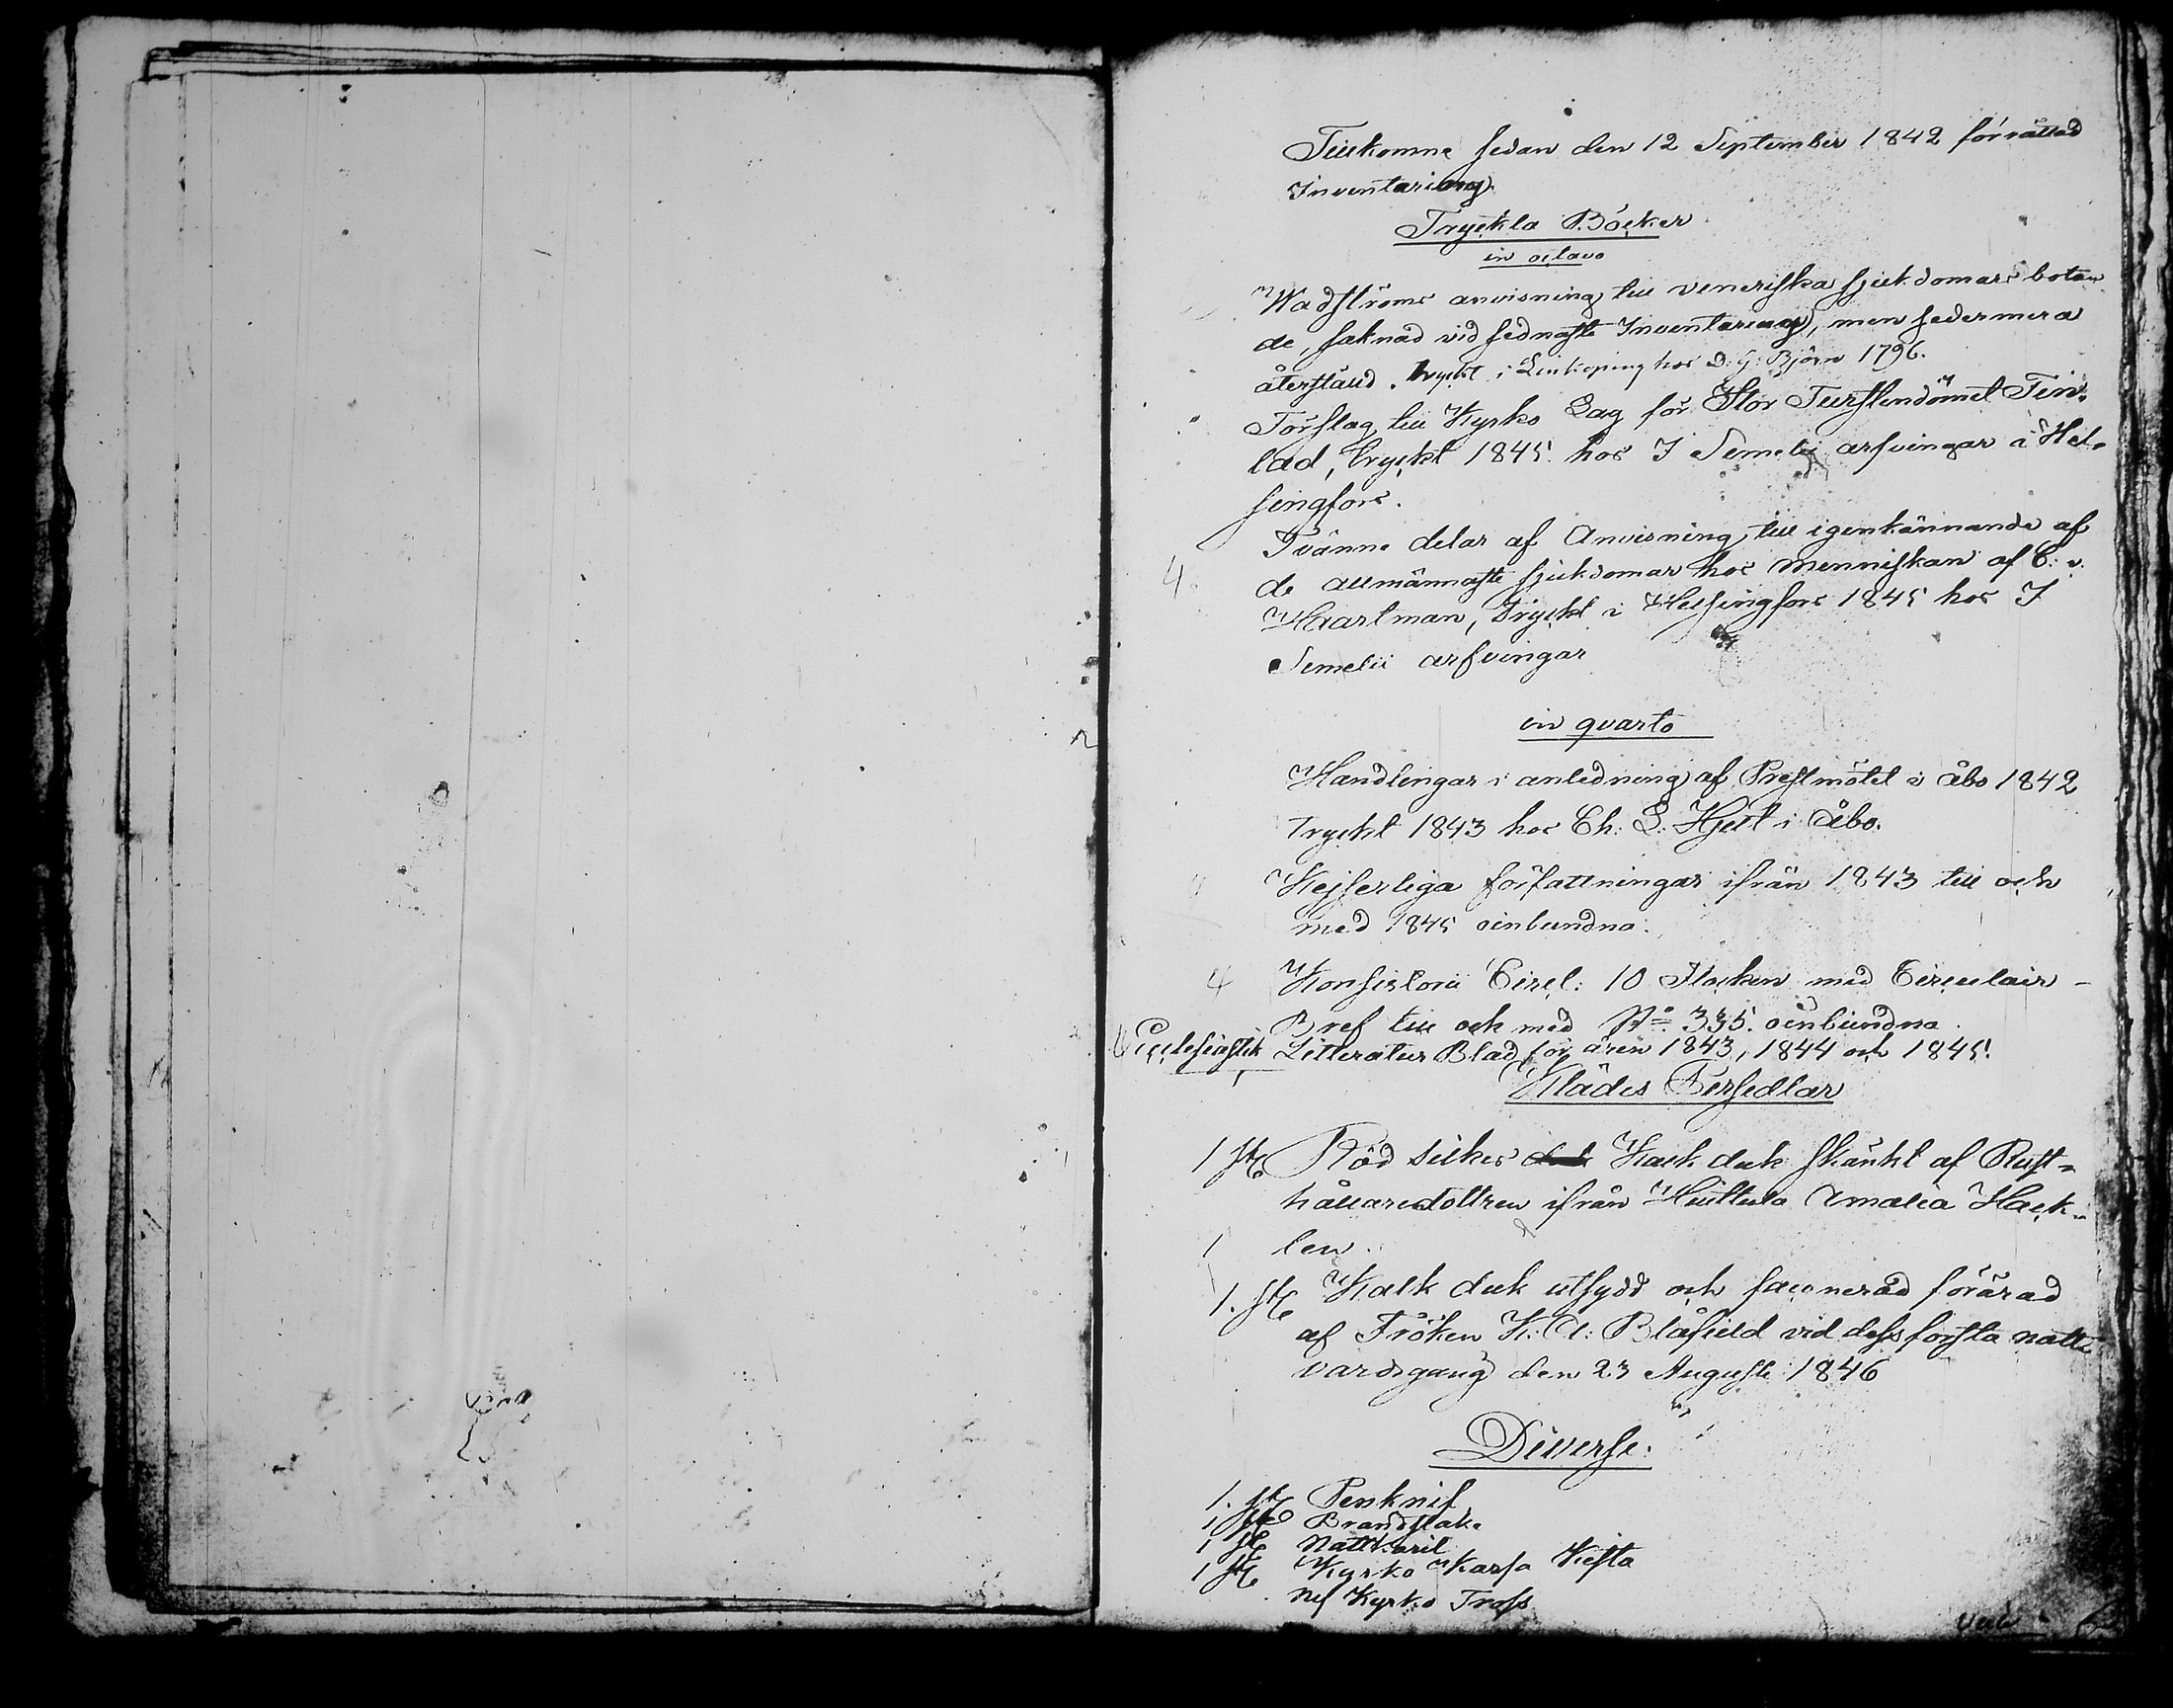 Tillkomne sedan den 12 September 1842 förrättad
Inventering
Tryckta Böcker
in octavo
Wadströms anvisning till veneriska sjukdomars botan
de, saknad vid sednaste Inventering, men sedermera
återstäld. tryckt i Linköping hos D: G: Björn 1796.
Förslag till Kyrko Lag för Stor Furstendömet Fin-
lad, tryckt 1845 hos J Simelii arfvingar i Hel-
singfors.
Tvänne delar af Anvisning till igenkännande af
4. de allmännaste sjukdomar hos menniskan af C: v:
Haartman, Tryckt i Helsingfors 1845 hos J
Simelii arfvingar
in qvarto
Handlingar i anledning af Prestmötet i Åbo 1842
Tryckt 1843 hos Ch: L: Hjelt i Åbo.
Kejserliga författningar ifrån 1843 till och
med 1845 oinbundna.
4 Konsistorii Circl: 10 Stycken med Circulair-
Bref till och med No 335. oinbundna
Ecclesiastik Litteratur Blad för åren 1843, 1844 och 1845.
Klädes Persedlar
1 st Röd silkes Kalk duk skänkt af Rust-
hållaredottren ifrån Huittula Amalia Hack-
1 len.
1. st Kalk duk utsydd och faconerad förärad
af Fröken K: A: Blåfield vid dess första natt-
vardsgang den 23 Augusti 1846
Diverse:
1. st Penknif
1 st Brandstake
1 st
1 st Kyrko Kassa Kista
Kyrko